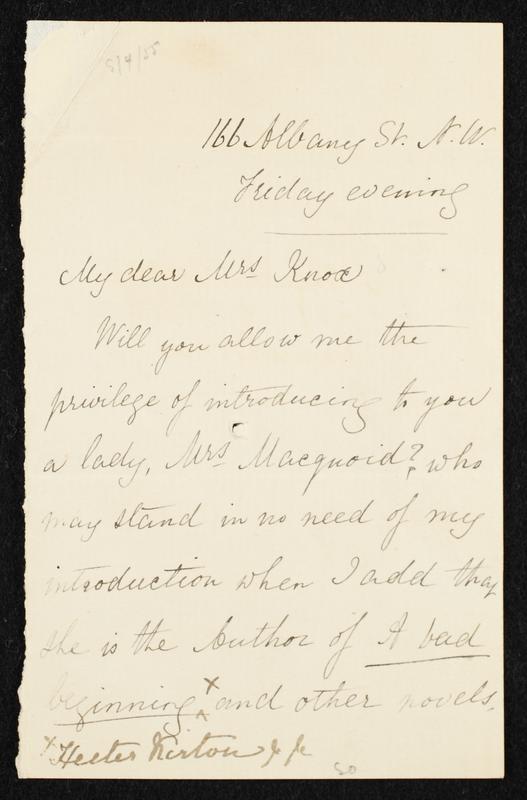 5/4/55
166 Albany St. N. W.
Friday evening
My dear Mrs Knox
Will you allow me the
privilege of introducing to you
a lady, Mrs Macquoid? who
may stand in no need of my
introduction when I add that
she is the Author of A bad
beginning x and other novels.
x Hester Kirton &c